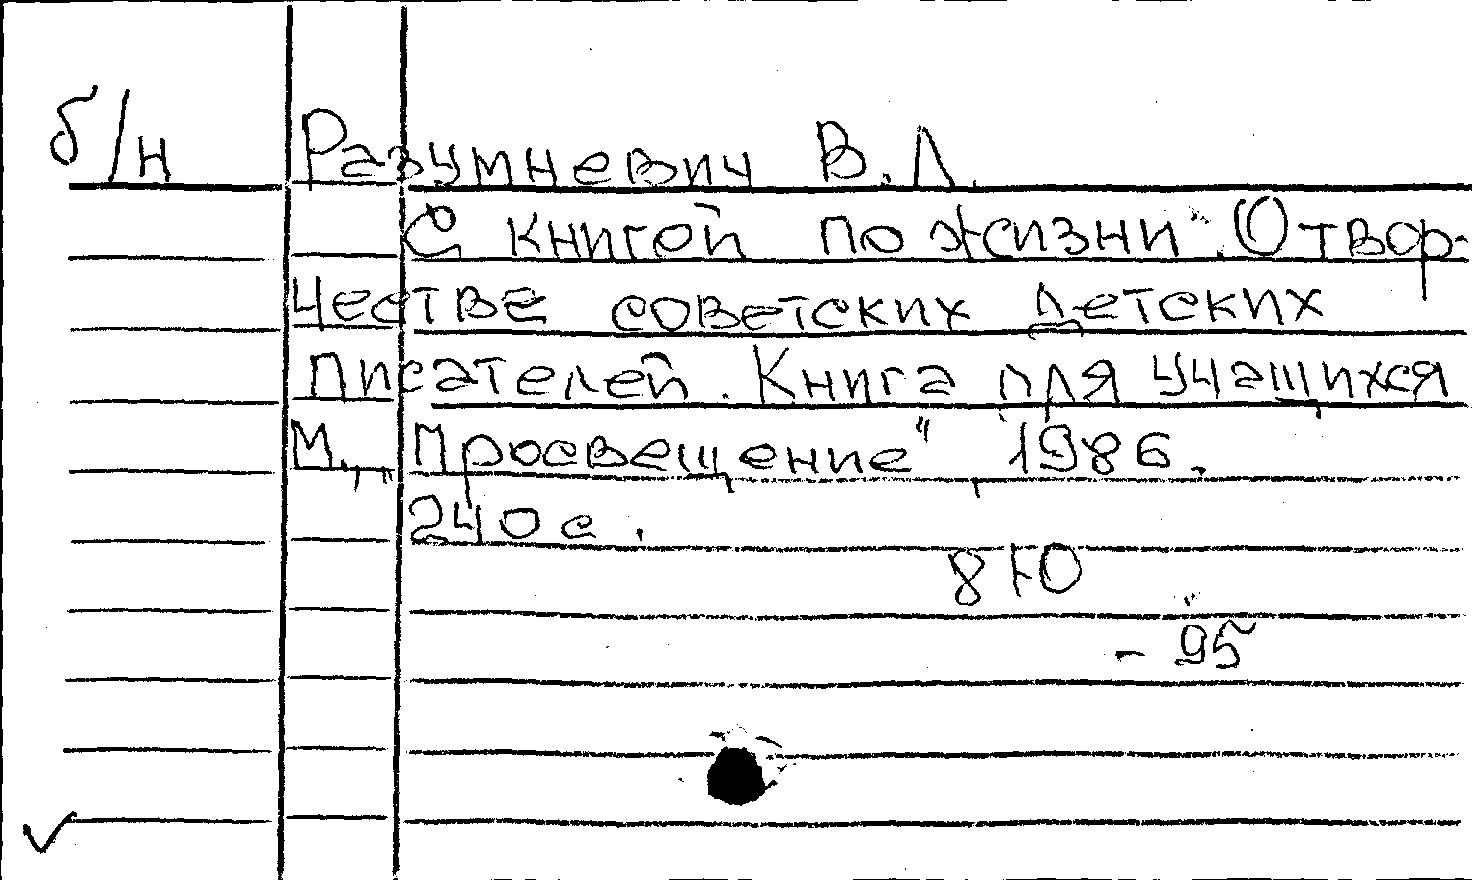 б/н Разумневич В.Л.
С книгой по жизни". О твор-
честве советских детских
писателей. Книга для учащихся
М., „Просвещение" 1986.
240 с.
8 Ю
- 95